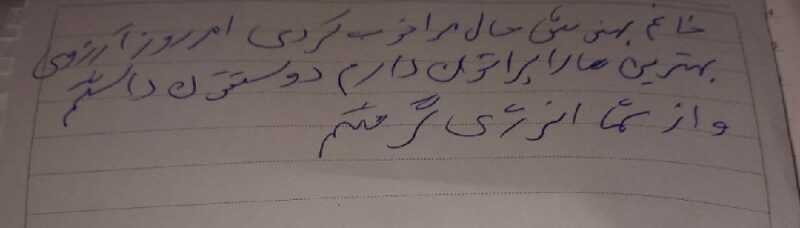 خانم بهنوش حال مرا خوب کردی امروز آرزوی
بهترین ها را براتون دارم دوستون داشتم
و از شما انرژی گرفتم